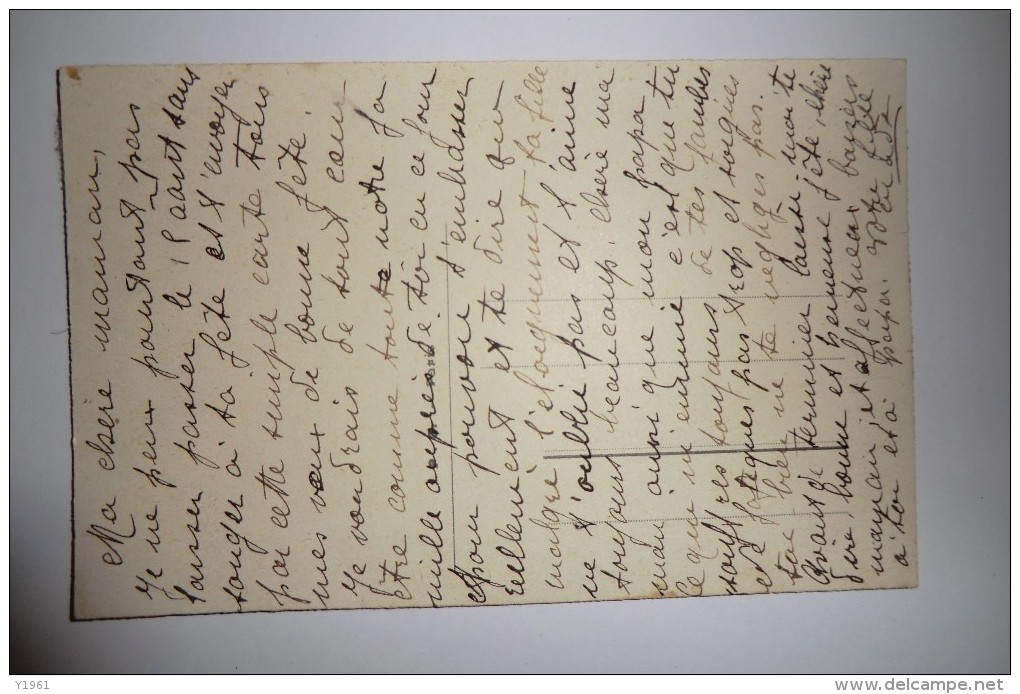 Ma chère maman,
Je ne peux pourtant pas
laisser passer le 15 aout sans
songer à ta fête et t'envoyer
par cette simple carte tous
mes vœux de bonne fête.
Je voudrais de tout cœur
être comme toute notre
mille auprès de toi en ce jour
pour pouvoir t'embrasser
réellement et te dire que
malgré l'eloignement ta fille
ne t'oublie pas et t'aime
toujours beaucoup, chère ma
man ainsi que mon papa
ce qui m'ennuie c'est que tu
souffres toujours de tes jambes
ne fatigues pas trop et soignes
toi bien ne te negliges pas.
Avant de terminer laisse-moi te
dire bonne et heureuse fête, chère
maman, et affectueux baisers
à toi et à papa. votre fille
Y1961
www.delcampe.net